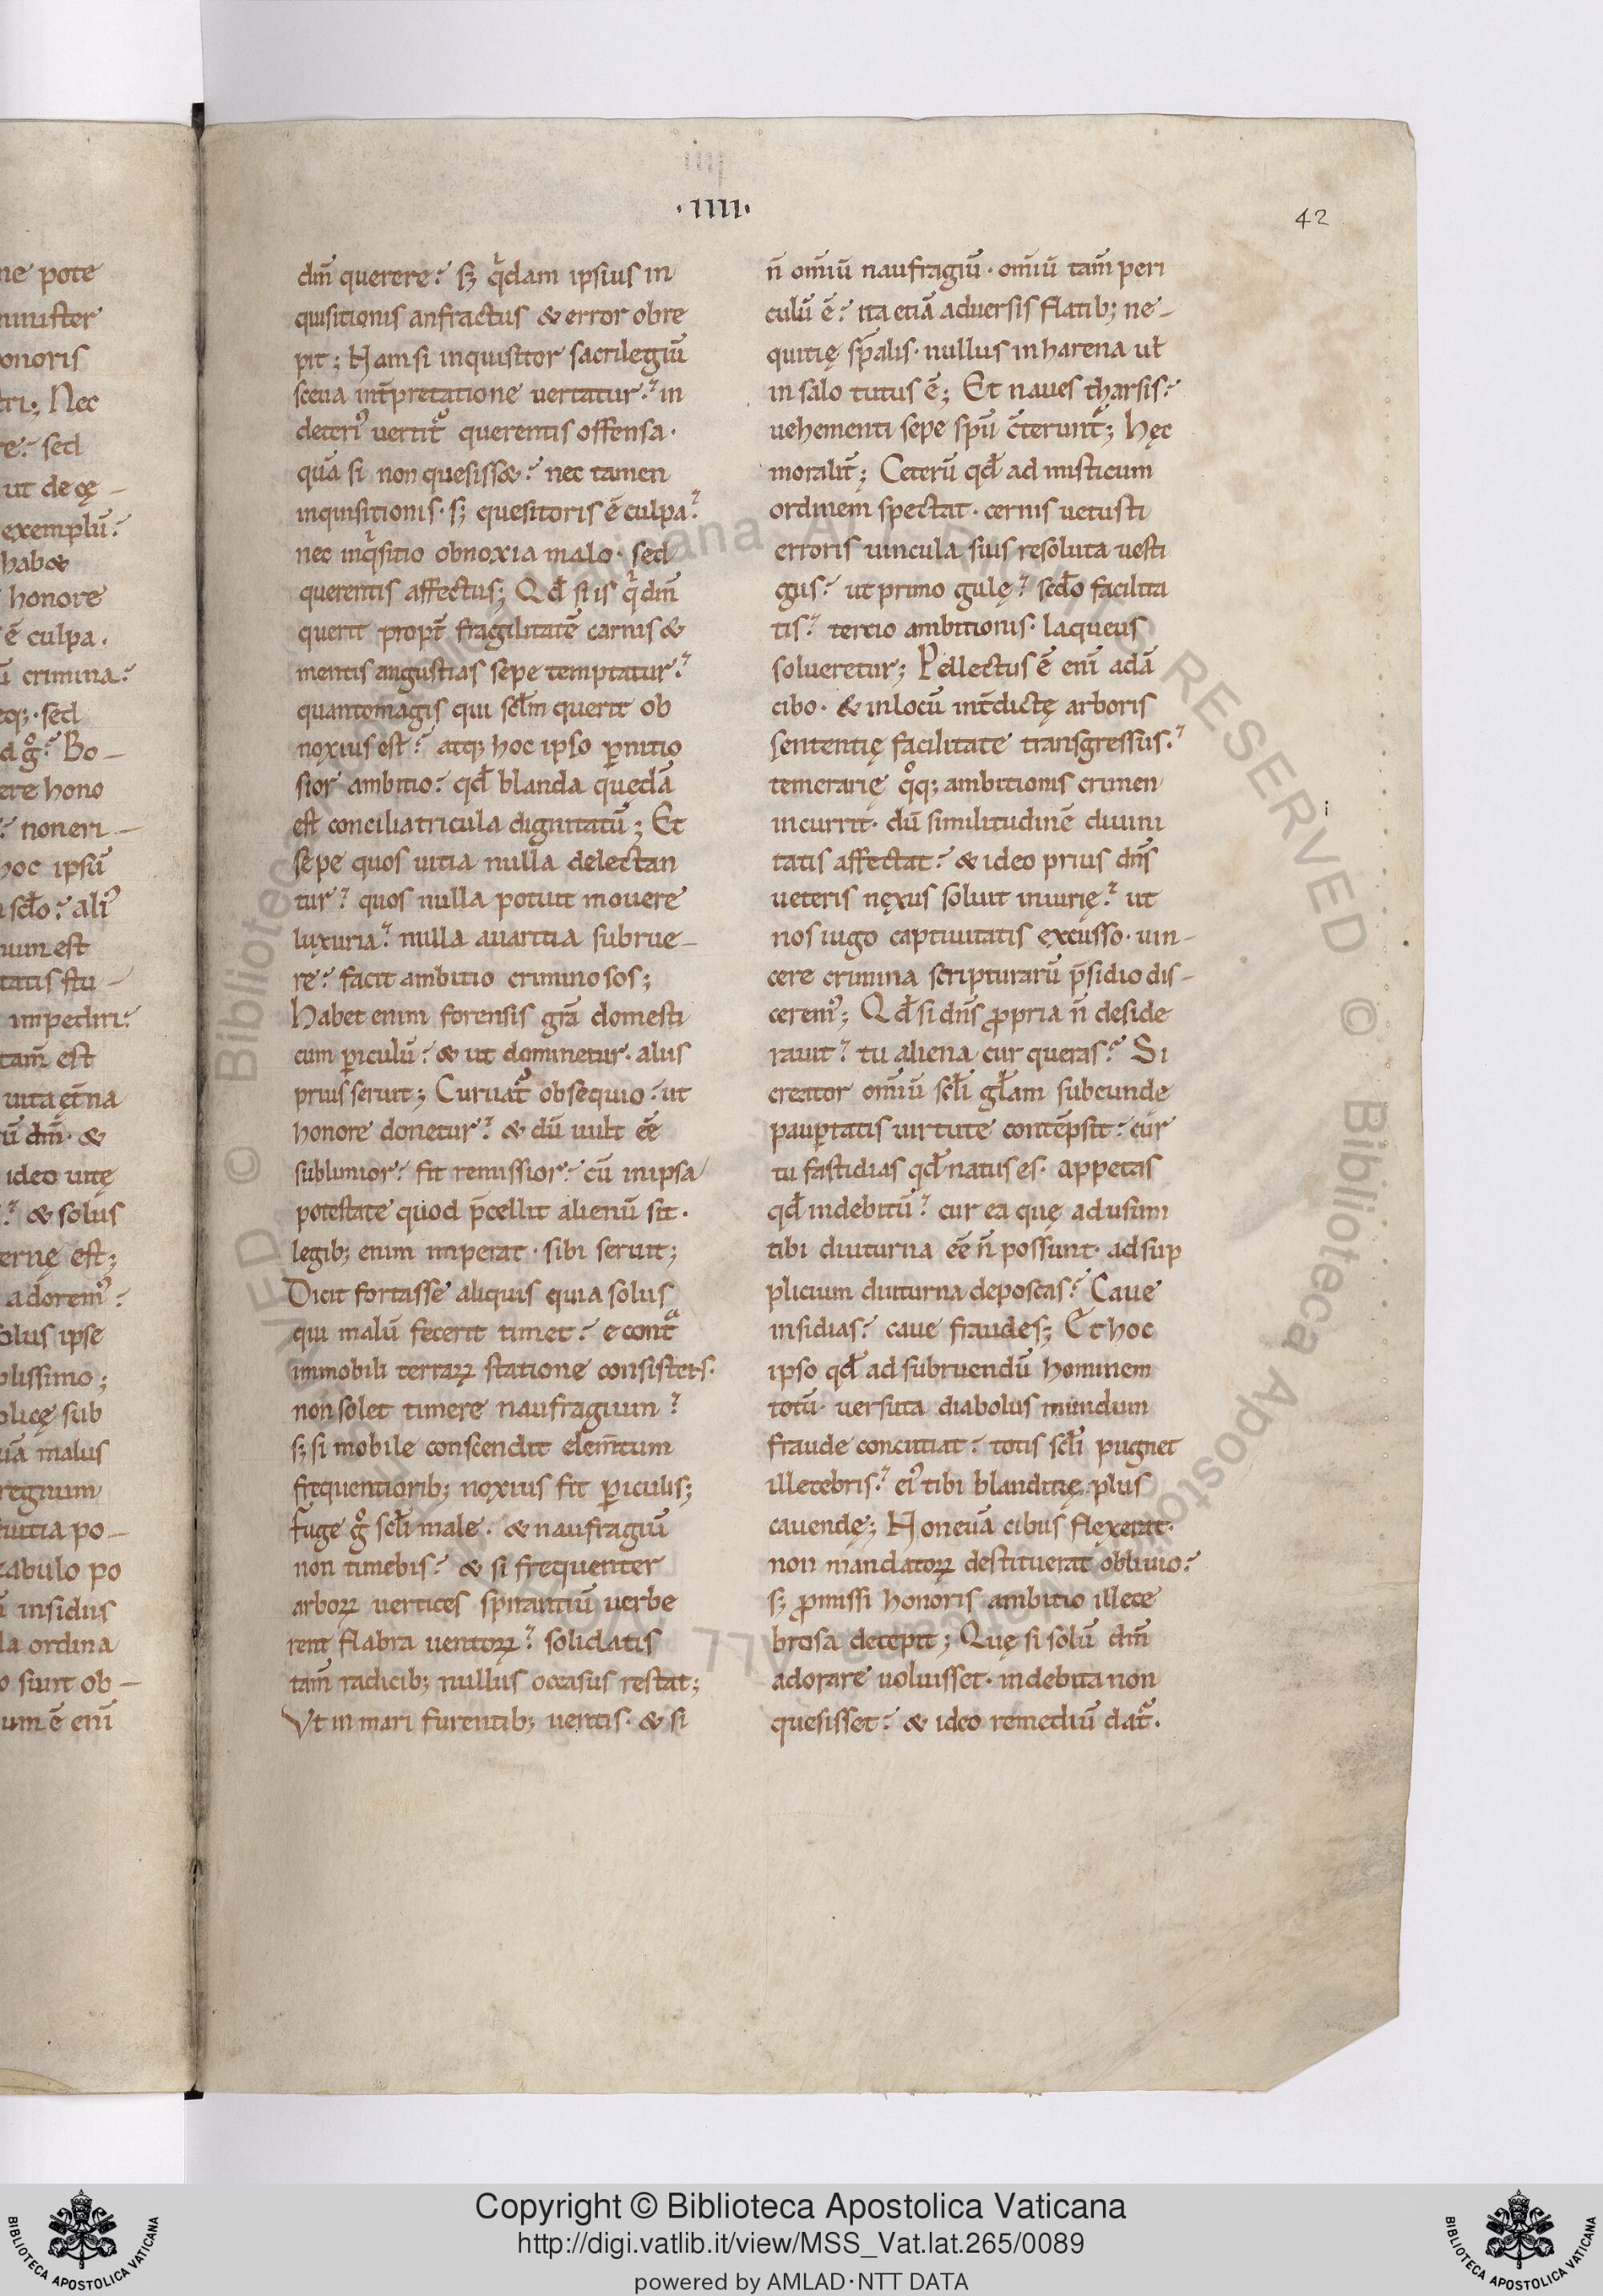 ne pote
minister
onoris
tri; Nec
re? sed
ut de cę-
exemplū?
hab&
honore
ē culpa.
ū crimina?
eq;. sed
d gͦ? Bo-
ere hono
? non eri-
hoc ipsū
scđo? aliꝰ
num est
tatis stu-
impediri?
tam̄ est
uita ęt̄na
ū dm̄. &
ideo uitę
? & solus
ernę est;
adoremꝰ?
olus ipse
plissimo;
plicę sub
uā malus
regnum
tuitia po-
tabulo po
ī insidiis
la ordina
o sunt ob-
um ē eni̅
iiii
·IIII·
42
dm̄ querere? sꝫ qͥdam ipsius in
quisitionis anfractus & error obre
pit; Nam si inquisitor sacrilegiū
sceua int̄pretatione uertatur? in
deteriꝰ uertit᷑ querentis offensa.
quā si non quesiss&? nec tamen
inquisitionis. sꝫ quesitoris ē culpa?
nec inqͥsitio obnoxia malo. sed
querentis affectus; Qđ si is qͥ dm̄
querit propt̄ fragilitatē carnis &
mentis angustias sepe temptatur?
quanto magis qui scłm querit ob
noxius est? atq; hoc ipso ꝑnitio
sior ambitio? qđ blanda quędā
est conciliatricula dignitatū; Et
sepe quos uitia nulla delectan
tur? quos nulla potuit mouere
luxuria? nulla auaritia subrue-
re? facit ambitio criminosos;
Habet enim forensis gr̄a domesti
cum ꝑiculū? & ut dominetur. aliis
prius seruit; Curuat᷑ obsequio? ut
honore donetur? & dū uult eē
sublimior? fit remissior? cū in ipsa
potestate quod p̄cellit alienū sit.
legib; enim imperat. sibi seruit;
Dicit fortasse aliquis quia solus
qui malū fecerit timet? e contͣ
immobili terraꝝ statione consistens.
non solet timere naufragium?
sꝫ si mobile conscendit elem̄tum
frequentiorib; noxius fit ꝑiculis;
Fuge gͦ scłi male. & naufragiū
non timebis? & si frequenter
arboꝝ uertices spirantiū uerbe
rent flabra uentoꝝ? solidatis
tam̄ radicib; nullus occasus restat;
Vt in mari furentib; uentis. & si
n̄ omīū naufragiū. omīū tam̄ peri
culū ē? ita etiā aduersis flatib; ne-
quitię sp̄alis. nullus in harena uł
in salo tutus ē; Et naues tharsis?
uehementi sepe spū c̄terunt᷑; Hęc
moralit̄; Ceterū qđ ad misticum
ordinem spectat. cernis uetusti
erroris uincula suis resoluta uesti
giis? ut primo gulę? scđo facilita
tis? tercio ambitionis. laqueus
solueretur; Pellectus ē eni̅ adā
cibo. & in locū int̄dictę arboris
sententię facilitate transgressus?
temerarię qͦq; ambitionis crimen
incurrit. dū similitudinē diuini
tatis affectat? & ideo prius dn̄s
ueteris nęxus soluit iniurię? ut
nos iugo captiuitatis excusso. uin-
cere crimina scripturarū p̄sidio dis-
ceremꝰ; Qđ si dn̄s ꝓpria n̄ deside
rauit? tu aliena cur queras? Si
creator omīū scłi głam subeunde
pauꝑtatis uirtute contēpsit? cur
tu fastidias qđ natus es. appetas
qđ indebitū? cur ea quę ad usum
tibi diuturna eē n̄ possunt. ad sup
plicium diuturna deposcas? Caue
insidias? caue fraudes; Et hoc
ipso qđ ad subruendū hominem
totū. uersuta diabolus mundum
fraude concutiat? totis scłi pugnet
illecebris? eiꝰ tibi blanditię plus
cauendę; Non euā cibus flexerat.
non mandatoꝝ destituerat obliuio?
sꝫ ꝓmissi honoris ambitio illece
brosa decepit; Quę si solū dm̄
adorare uoluisset. indebita non
quesisset? & ideo remediū dat᷑.
i
Copyright © Biblioteca Apostolica Vaticana
http://digi.vatlib.it/view/MSS_Vat.lat.265/0089
powered by AMLAD·NTT DATA
BIBLIOTECA APOSTOLICA VATICANA
BIBLIOTECA APOSTOLICA VATICANA